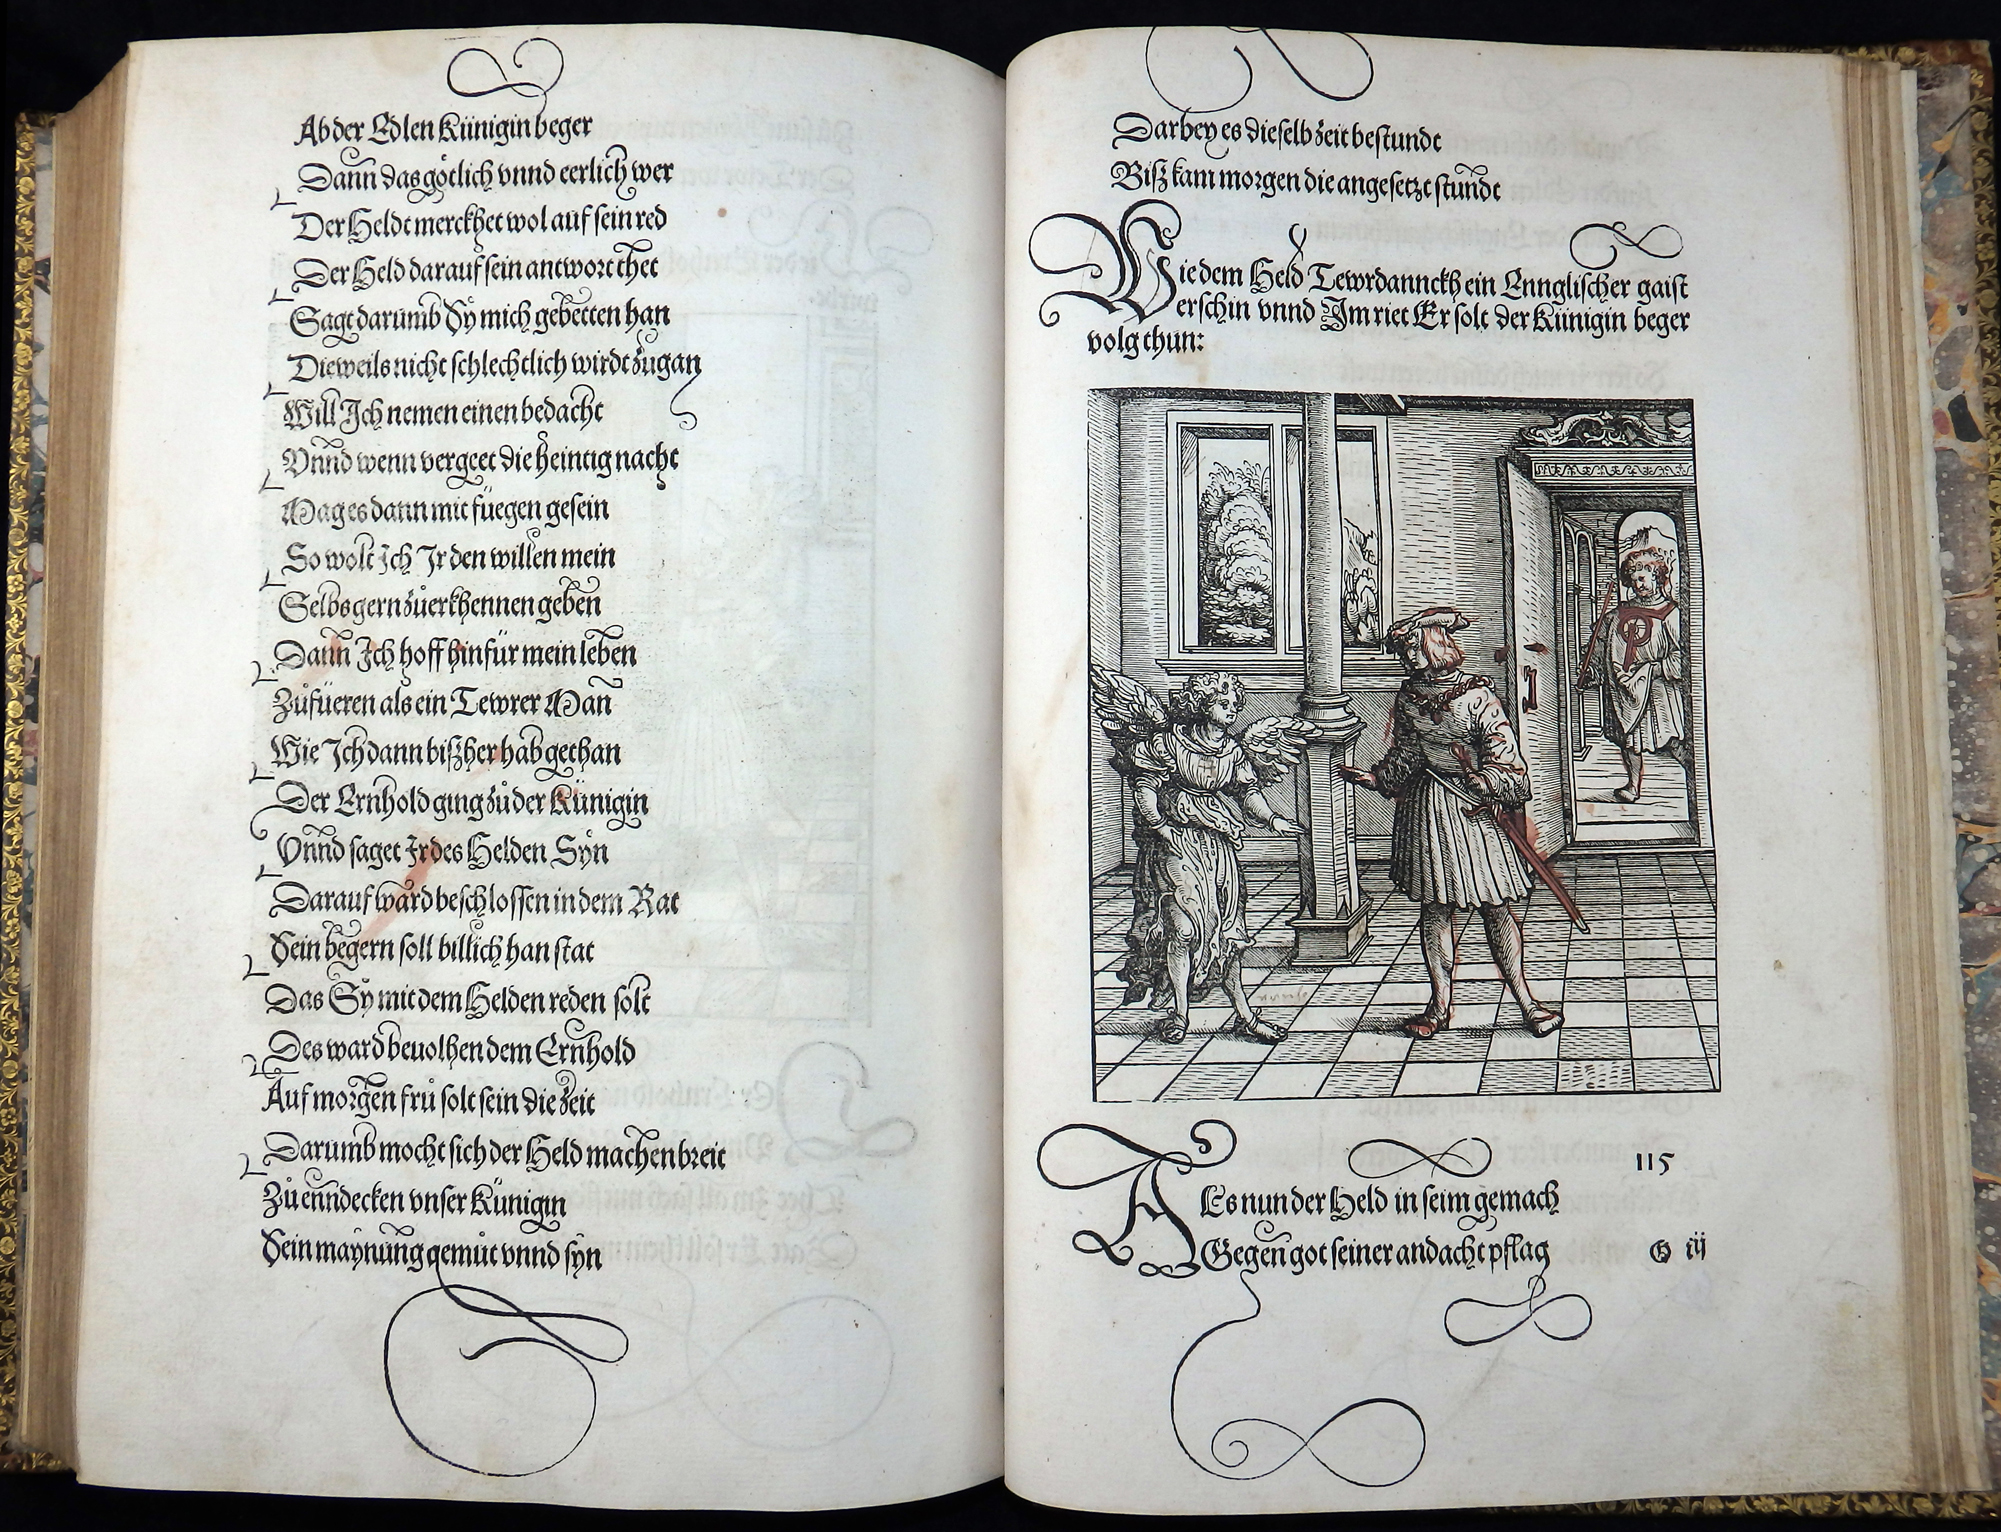 Ab der Edlen Künigin beger
Dann das götlich vnnd eerlich wer
Der Heldt merckhet wol auf sein red
Der Held darauf sein antwort thet
Sagt darumb Sy mich gebetten han
Dieweils nicht schlechtlich wirdt zugan
Will Ich nemen einen bedacht
Vnnd wenn vergeet die heintig nacht
Mag es dann mit füegen gesein
So wolt Ich Ir den willen mein
Selbs gern zuerkhennen geben
Dann Ich hoff hinfür mein leben
Zufüeren als ein Tewrer Man
Wie Ich dann biszher hab gethan
Der Ernhold ging zu der Künigin
Vnnd saget Ir des Helden Syn
Darauf ward beschlossen in dem Rat
Sein begern soll billich han stat
Das Sy mit dem Helden reden solt
Des ward beuolhen dem Ernhold
Auf morgen fru solt sein die zeit
Darumb mocht sich der Held machen breit
Zu enndecken vnser Künigin
Sein maynung gemut vnnd syn
Darbey es dieselb zeit bestundt
Bisz kam morgen die angesetzt stundt
Wie dem Held Tewrdannckh ein Ennglischer gaist
erschin vnnd Im riet Er solt der Künigin beger
volg thun:
115
Als nun der Held in seim gemach
Gegen got seiner andacht pflag
G iij